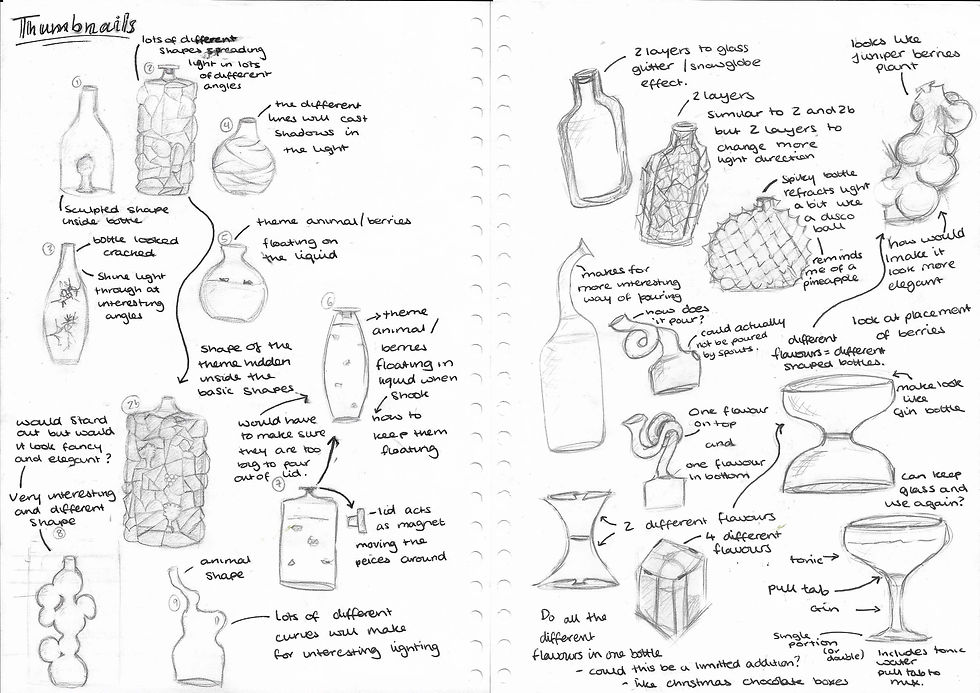 Thumbnails
lots of different
shapes spreading
light in lots
of different
angles
1
2
the different
lines will cast
shadows in
the light
4
sculpted shape
inside bottle
3
bottle looked
cracked
shine light
through at
interesting
angles
theme animal/berries
floating on
the liquid
5
6
theme
animal/
berries
floating in
liquid when
shook
how to
keep them
floating
shape of the
theme hidden
inside the
basic shapes
would have
to make sure
they are too
big to pour
out of lid.
would stand
out but would
it look fancy
and elegant?
very interesting
and different
shape
8
2b
7
-lid acts
as magnet
moving the
peices around
animal
shape
9
lots of different
curves will make
for interesting lighting
2 layers to glass
glitter/snowglobe
effect.
2 layers
similar to 2 and 2b
but 2 layers to
change more
light direction
looks like
juniper berries
plant
spiky bottle
refracts light
a bit like
a disco
ball
reminds
me of a
pineapple
how would
I make it
look more
elegant
look at placement
of berries
makes for
more interesting
way of pouring
how does
it pour?
could actually
not be poured
by spouts.
different
flavours = different
shaped bottles.
make look
like
gin bottle
One flavour
on top
and
one flavour
in bottom
can keep
glass and
use again?
2 different flavours
4 different
flavours
tonic
pull tab
Gin
single
portion
(or
double)
Includes tonic
water
pull tab to
mix.
Do all the
different
flavours in one bottle
- could this be a limmited addition?
- like christmas chocolate boxes